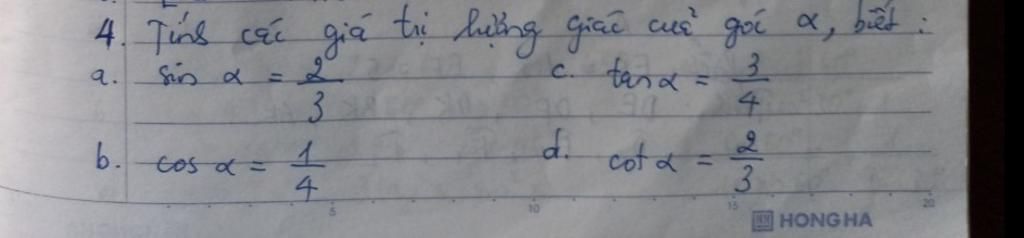 4. Tính các giá trị lượng giác của góc α, biết:
a. sin α = 2/3 c. tan α = 3/4
b. cos α = 1/4 d. cot α = 2/3
5 10 15 20
HONG HA